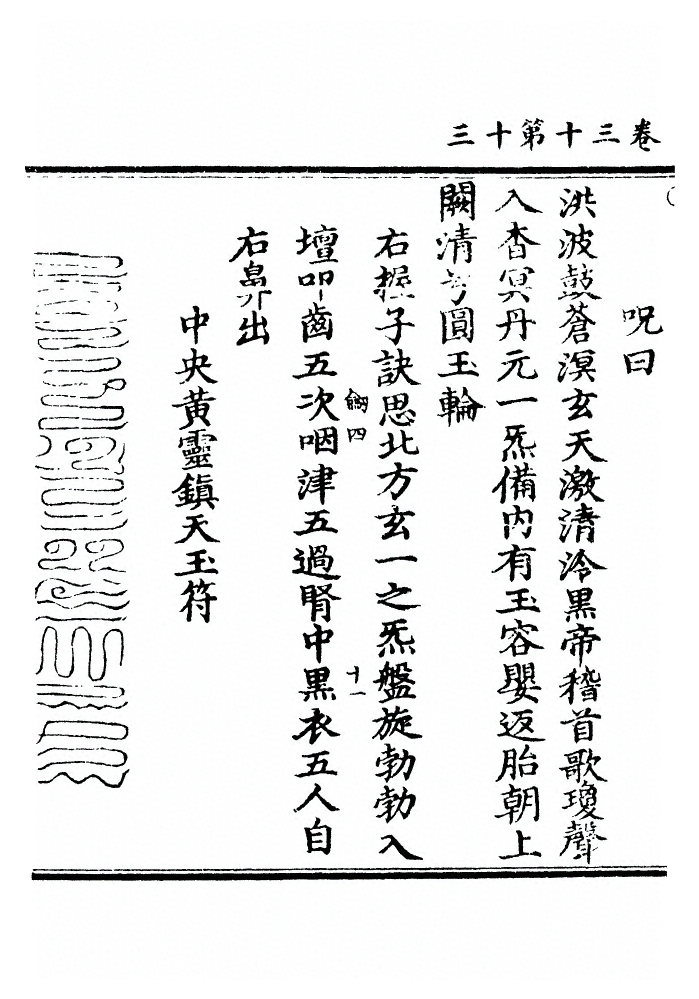 卷三十第十三
呪曰
洪波鼓蒼溟玄天激清泠黑帝稽首歌瓊聲
入杳冥丹元一炁備内有玉容嬰返胎朝上
闕清兮圓玉輪
右握子訣思北方玄一之炁盤旋勃勃入
劒四
十一
壇叩齒五次咽津五過腎中黒衣五人自
右鼻出
中央黃靈鎮天玉符